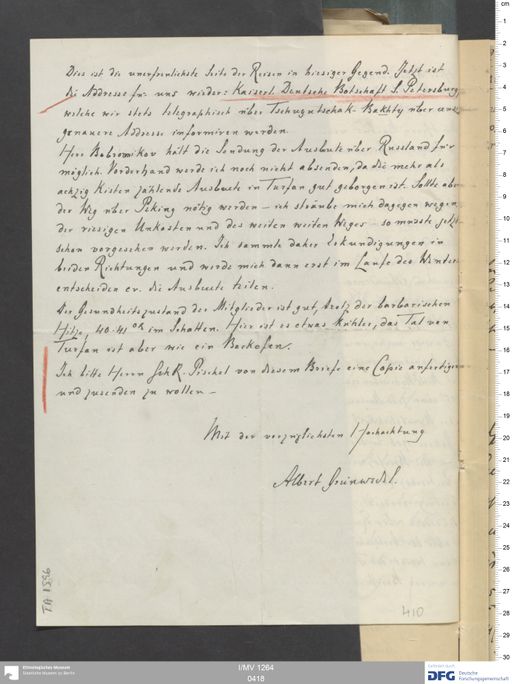 Dies ist die unerfreulichste Seite der Reisen in hiesiger Gegend. Jetzt ist
die Addresse für uns wieder: Kaiserl. Deutsche Botschaft S. Petersburg
welche wir stets telegraphisch über Tschugutschak-Bakhty über uns
genauere Address informiren werden.
Herr Bobromikov hält die Sendung der Ausbeute über Russland für
möglich. Vorderhand werde ich noch nicht absenden, da die mehr als
achzig Kisten zählende Ausbeute in Turfan gut geborgen ist. Sollte aber
der Weg über Peking nötig werden – ich sträube mich dagegen wegen
der riesigen Unkosten und des weiten weiten Weges – so müsste jetzt
schon vorgesehen werden. Ich sammle daher Erkundigungen in
beiden Richtungen und werde mich dann erst im Laufe des Winters
entscheiden ev. die Ausbeute teilen.
Der Gesundheitszustand der Mitglieder ist gut, trotz der barbarischen
Hitze 40-41 °R im Schatten. Hier ist es etwas kühler, das Tal von
Turfan ist aber wie ein Backofen.
Ich bitte Herrn GehR. Pischel von diesem Briefe eine Copie anfertigen
und zusenden zu wollen –
Mit der vorzüglichsten Hochachtung
Albert Grünwedel.
TA 1596
410
Ethnologisches Museum
Staatliche Museen zu Berlin
I/MV 1264
0418
Gefördert durch
DFG Deutsche
Forschungsgemeinschaft
cm
0
1
2
3
4
5
6
7
8
9
10
11
12
13
14
15
16
17
18
19
20
21
22
23
24
25
26
27
28
29
30